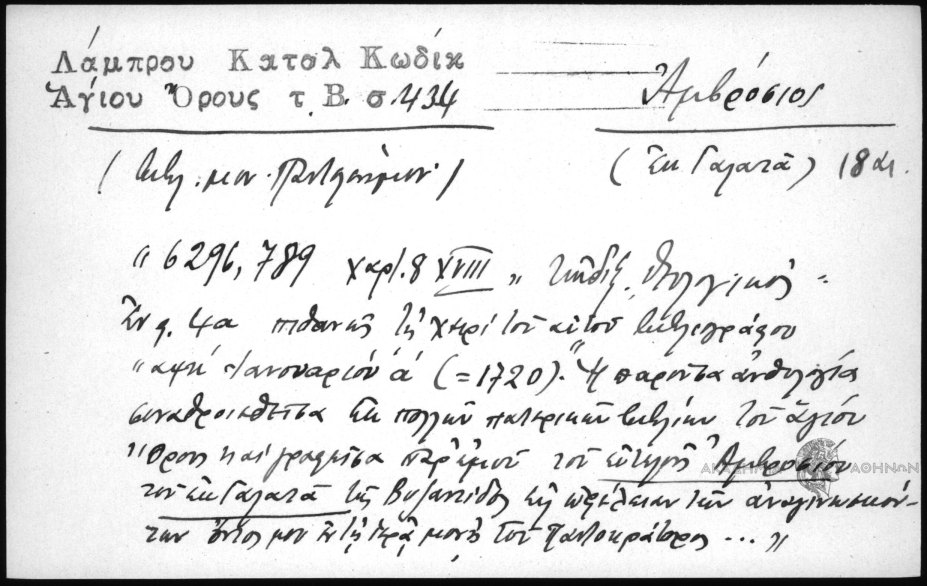 Λάμπρου Κατάλ Κωδίκ
Ἁγίου Ὄρους τ. Β. σ. 434
Ἀμβρόσιος
(Βιβλ. μον. Παντελεήμον.)
(ἐκ Γαλατᾶ) 18 αι.
"6296, 789 χαρτ. 8 XVIII "
Ἐν φ. 4α πιθανῶς τῇ χειρὶ τοῦ αὐτοῦ βιβλιογράφου
"αψκ Ἰανουαρίου ά (=1720). "Ἡ παροῦσα ἀνθολογία
συναθροισθεῖσα ἐκ πολλῶν πατερικῶν βιβλίων τοῦ ἁγίου
Ὄρους καὶ γραφεῖσα παρ' ἐμοῦ τοῦ εὐτελοῦς Ἀμβροσίου
τοῦ ἐκ Γαλατᾶ τῆς Βυζαντίδος εἰς ὠφέλειαν τῶν ἀναγινωσκόν-
των ὄντος μου ἐν τῇ ἱερᾷ μονῇ τοῦ Παντοκράτορος ... "
ΑΘΗΝΩΝ